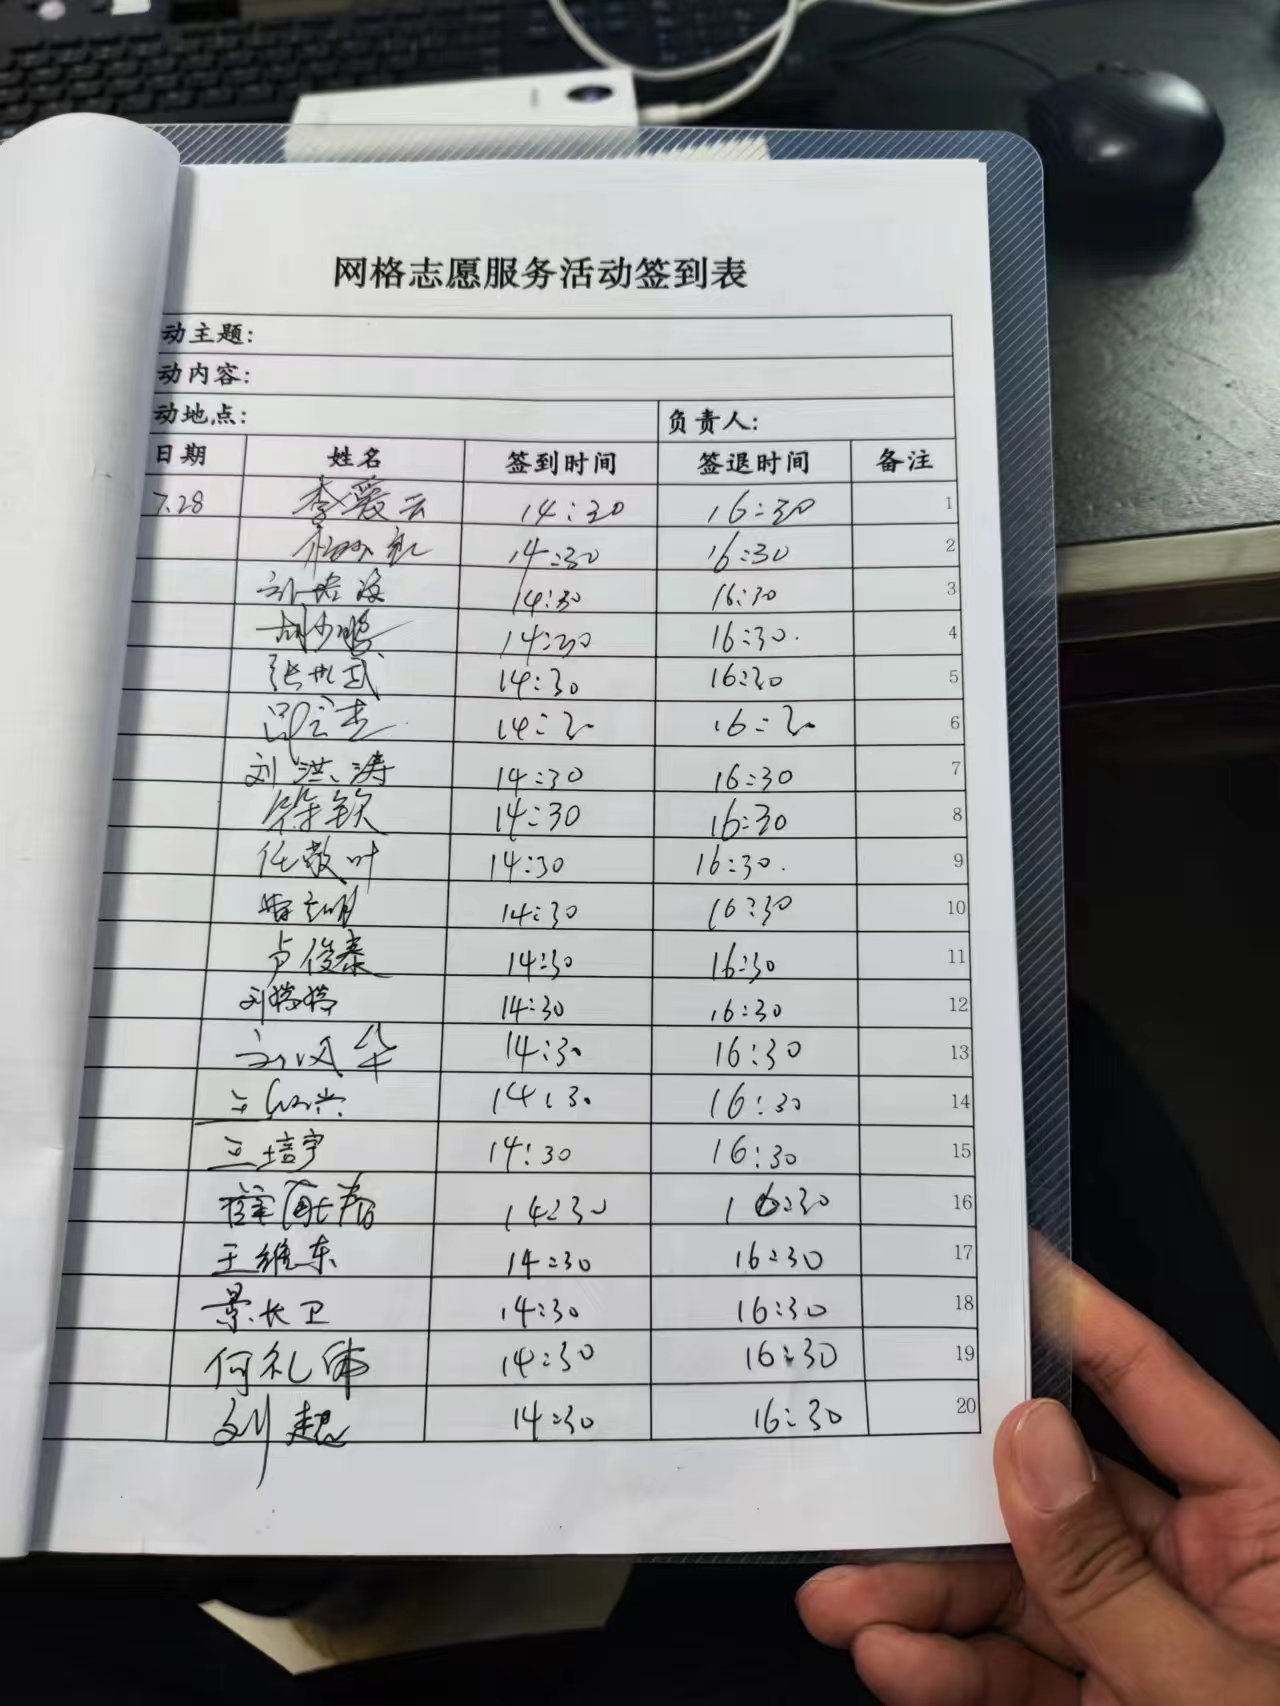 网格志愿服务活动签到表
动主题:
动内容:
动地点: 负责人:
日期 姓名 签到时间 签退时间 备注
7.28 李爱云 14:30 16:30 1
14:30 16:30 2
14:30 16:30 3
胡少鹏 14:30 16:30. 4
张世武 14:30 16:30 5
14:30 16:30 6
刘洪涛 14:30 16:30 7
徐钦 14:30 16:30 8
任敬叶 14:30 16:30. 9
14:30 16:30 10
卢俊泰 14:30 16:30 11
刘婷婷 14:30 16:30 12
刘风华 14:30 16:30 13
14:30 16:30 14
王培宇 14:30 16:30 15
14:30 16:30 16
王维东 14:30 16:30 17
景长卫 14:30 16:30 18
何礼伟 14:30 16:30 19
刘超 14:30 16:30 20